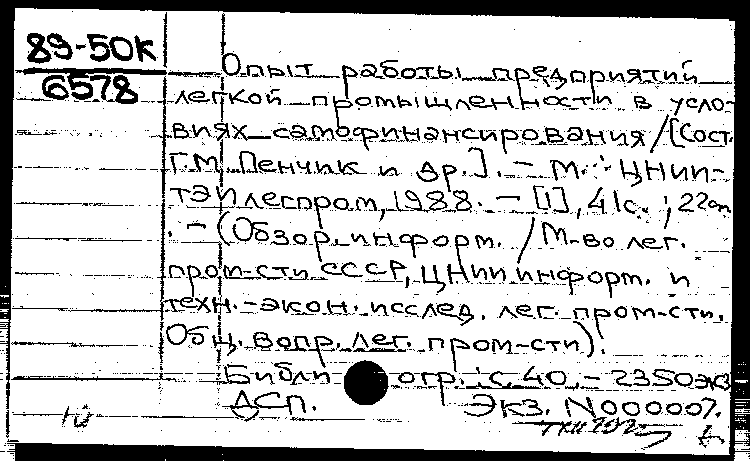 89-50К
6578
Опыт работы предприятий
легкой промышленности в усло-
виях самофинансирования / [Сост.
Г.М. Пенчик и др.]. - М. : ЦНИИ-
ТЭИлегпром, 1988. - [1], 41 с. ; 22 см
. - (Обзор. информ. / М-во лег.
пром-сти СССР, ЦНИИ информ. и
техн.-экон. исслед. лег. пром-сти.
Общ. вопр. лег. пром-сти).
Библиогр.: с. 40. - 2350 экз
ДСП. Экз. N000007.